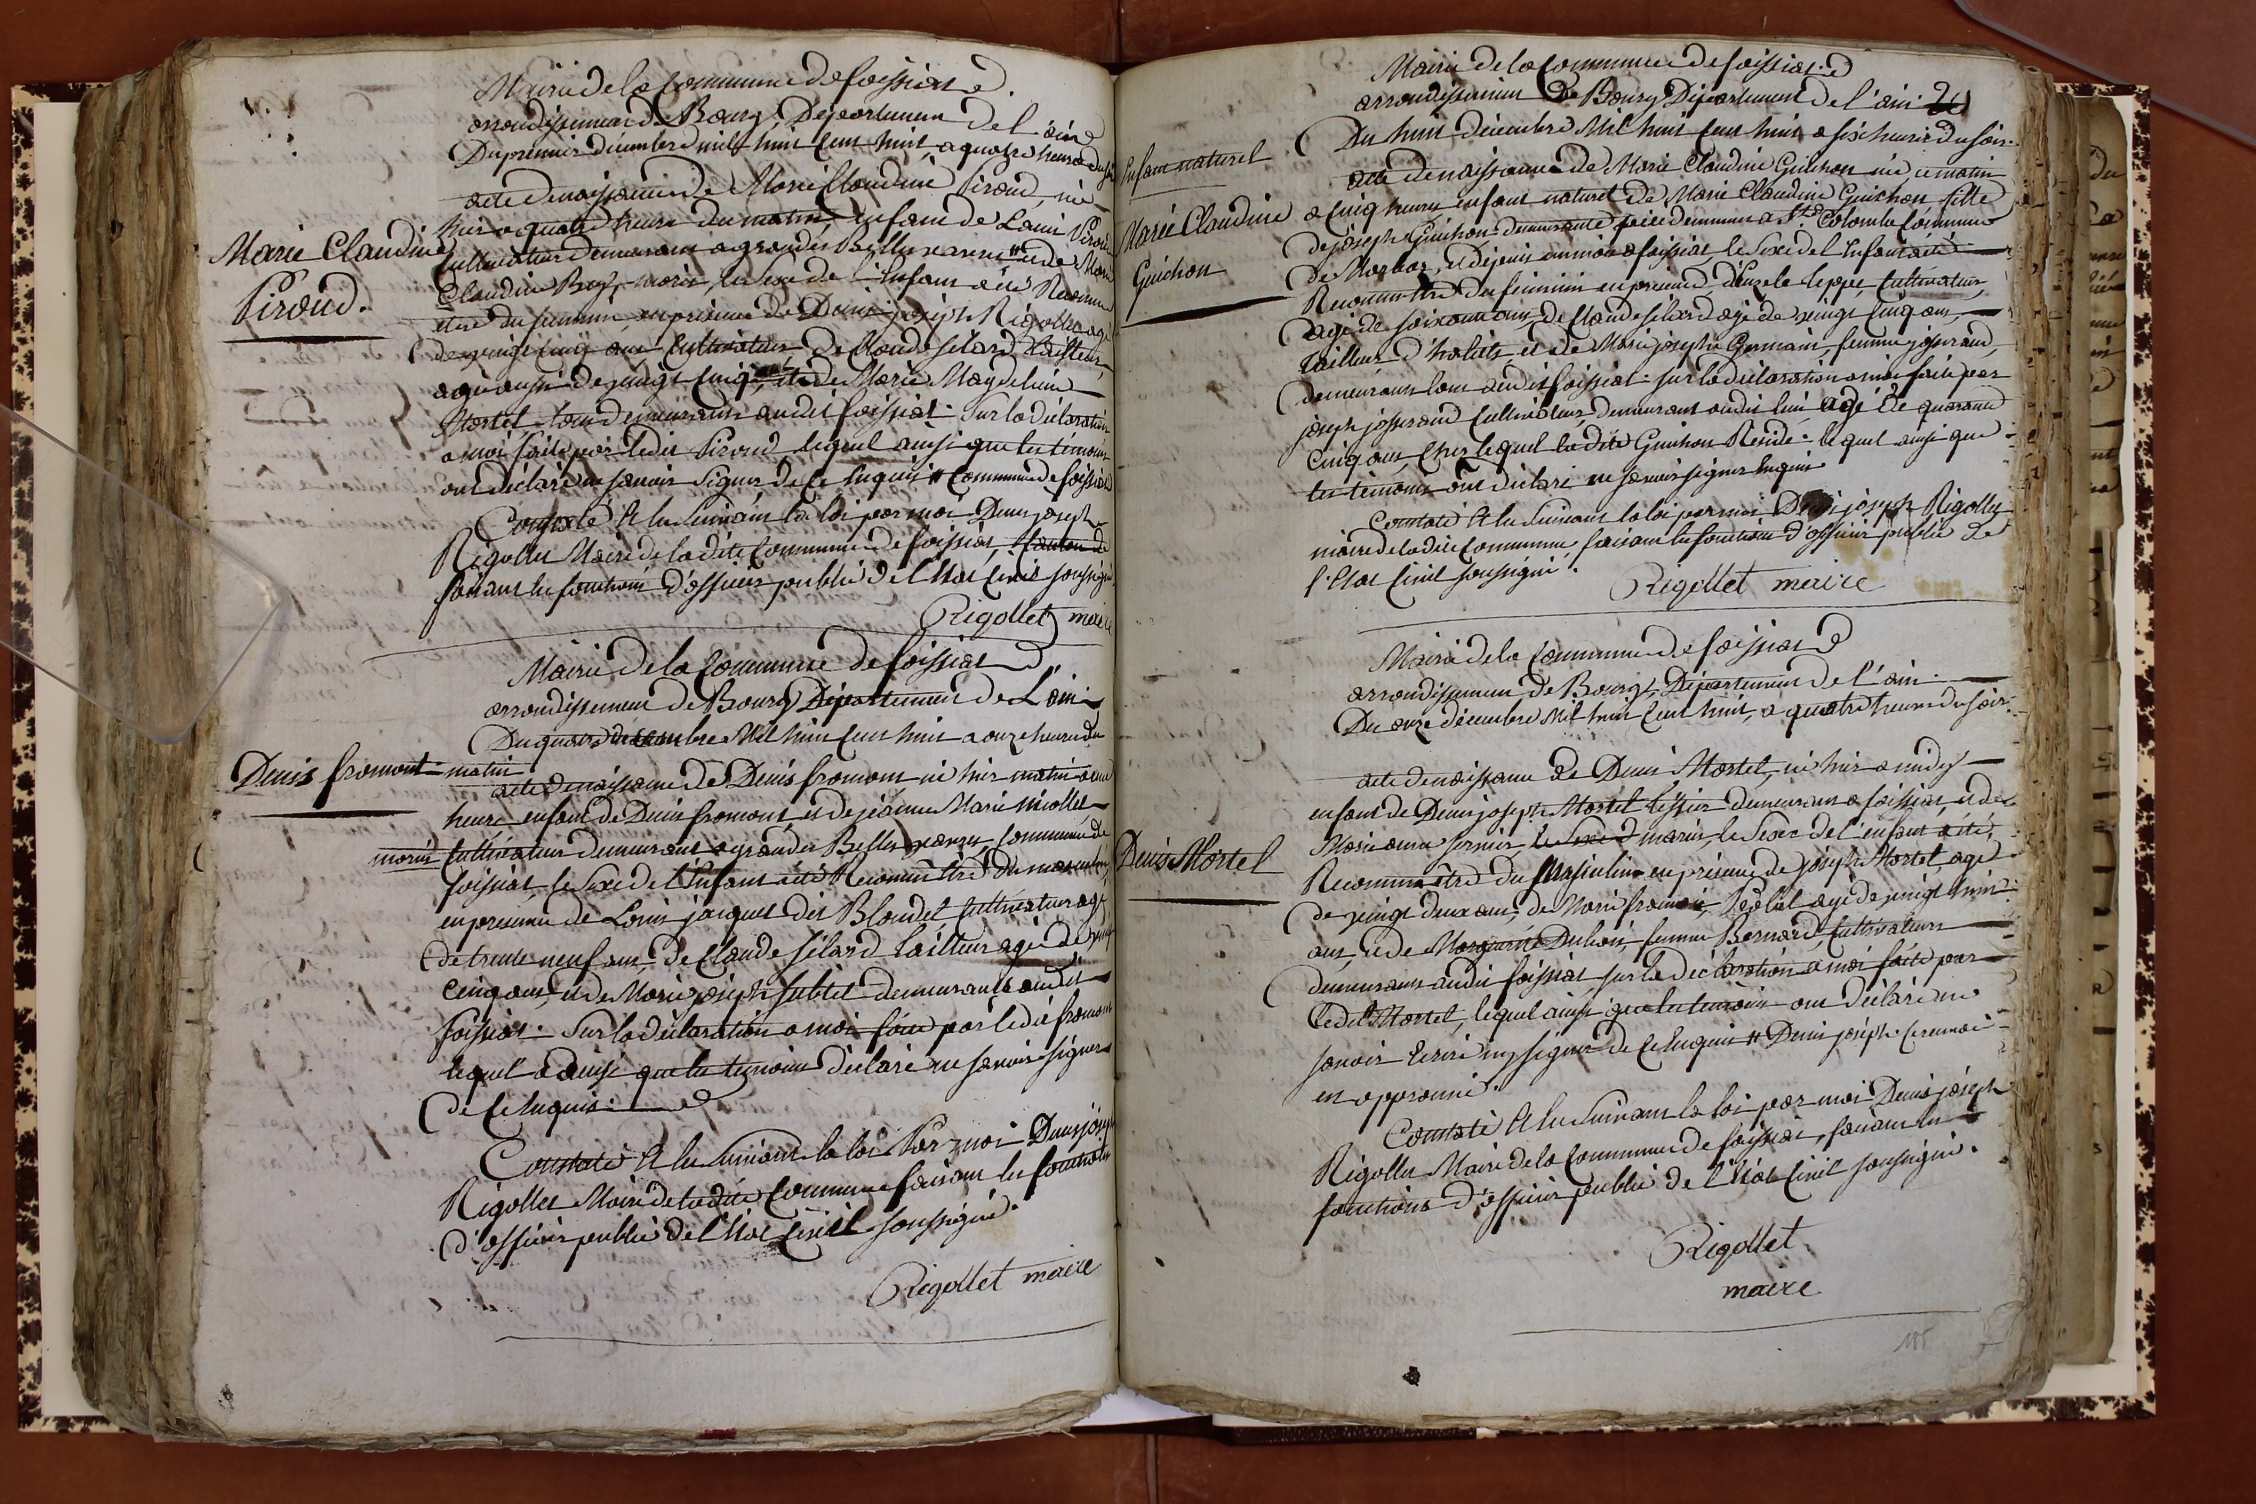 Mairie de la Commune de foissiat
arrondissement de Bourg Département de l'ain
Du premier décembre mil huit Cent huit, a quatre heures du soir
acte de naissance de Marie Claudine Piroud, née
hier a quatre heures du matin, enfant de Louis Piroud
Cultivateur demeurant a grandes Belles vavres # et de Marie
Claudine mariés, le Sexe de l'Enfant a été Reconnu
etre du feminin, en présence de Denis joseph Rigollet agé
de vingt cinq ans Cultivateur, de Claude felard tailleur,
agé aussi de vingt Cinq ans, et de Marie Magdelaine
Mortel tous demeurants audit foissiat. Sur la déclaration
a moi faite par ledit Piroud lequel ainsi que les témoins
ont déclaré ne savoir Signer de Ce Enquis # Commune de foissiat
Constaté Et lu Suivant la loi par moi Denis joseph
Rigollet Maire de la dite Commune de foissiat, Canton de
faisant les fonctions d'officier public de l'Etat Civil soussigné
Rigollet maire
Marie Claudine
Piroud.
Mairie de la Commune de foissiat
arrondissement de Bourg Département de L'ain
Du quatre décembre Mil huit Cent huit a onze heures du
matin
acte de naissance de Denis fromont né hier matin a une
heure enfant de Denis fromont, et de jeanne Marie Nicollet
mariés Cultivateurs demeurants a grandes Belles vavres, Commune de
foissiat, le Sexe de l'Enfant a été Reconnu Etre du masculin,
en présence de Louis jacquet dit Blondel, Cultivateur agé
de trente neuf ans, de Claude félard tailleur agé de vingt
Cinq ans, et de Marie joseph subtil demeurants audit
foissiat. Sur la déclaration a moi faite par ledit fromont
lequel a ainsi que les témoins déclaré ne savoir signer
de Ce Enquis.
Constaté Et lu Suivant la loi Par moi Denis joseph
Rigollet Maire de la dite Commune faisant les fonctions
d'officier public de l'Etat Civil soussigné.
Rigollet maire
Denis fromont
Mairie de la Commune de foissiat
arrondissement de Bourg Département de l'ain. 20
Du huit décembre Mil huit Cent huit a six heures du soir.
acte de naissance de Marie Claudine Guichon née ce matin
a Cinq heures enfant naturel de Marie Claudine Guichon fille
de joseph Guichon demeurante a Ste Colombe Commune
de Marboz, et depuis un mois a foissiat, le Sexe de l'Enfant a été
Reconnu Etre du feminin en présence Cultivateur,
agé de soixante ans, de Claude félard agé de vingt Cinq ans,
tailleur d'habits, et de Marie josephe Germain, femme josserand,
demeurants tous audit foissiat. sur la déclaration a moi faite par
joseph josserand Cultivateur, demeurant audit lieu agé de quarante
Cinq ans, Chez lequel la dite Guichon Reside. lequel ainsi que
les témoins ont déclaré ne savoir signer Enquis.
Constaté Et lu Suivant la loi par moi Denis joseph Rigollet
maire de la dite Commune, faisant les fonctions d'officier public de
l'Etat Civil soussigné.
Rigollet maire
Enfant naturel
Marie Claudine
Guichon
Mairie de la Commune de foissiat
arrondissement de Bourg, Département de l'ain.
Du onze décembre Mil huit Cent huit, a quatre heures du soir.
acte de naissance de Denis Mortel, né hier a midy
enfant de Denis joseph Mortel tissier demeurant a foissiat, et de
Marie anne mariés, le Sexe de l'enfant a été
Reconnu etre du Masculin en présence de joseph Mortel, agé
de vingt deux ans, de Marie agé de vingt huit
ans, et de Marguerite Dubois, femme Bernard, Cultivateurs
demeurants audit foissiat, sur la déclaration a moi faite par
ledit Mortel, lequel ainsi que les témoins ont déclaré ne
savoir Ecrire ny signer de Ce Enquis # Denis joseph
en approuvé.
Constaté Et lu Suivant la loi par moi Denis joseph
Rigollet Maire de la Commune de foissiat, faisant les
fonctions d'officier public de l'Etat Civil soussigné.
Rigollet
maire
Denis Mortel
105